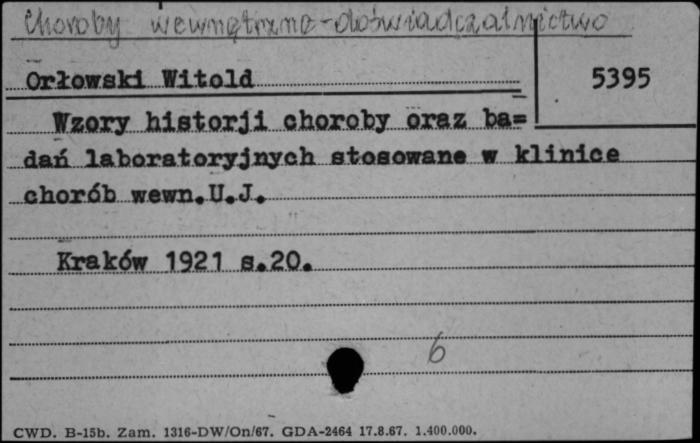 Choroby wewnętrzne - doświadczalnictwo
Orłowski Witold
5395
Wzory historji choroby oraz ba=
dań laboratoryjnych stosowane w klinice
chorób wewn.U.J.
Kraków 1921 s.20.
6
CWD. B-15b. Zam. 1316-DW/On/67. GDA-2464 17.8.67. 1.400.000.